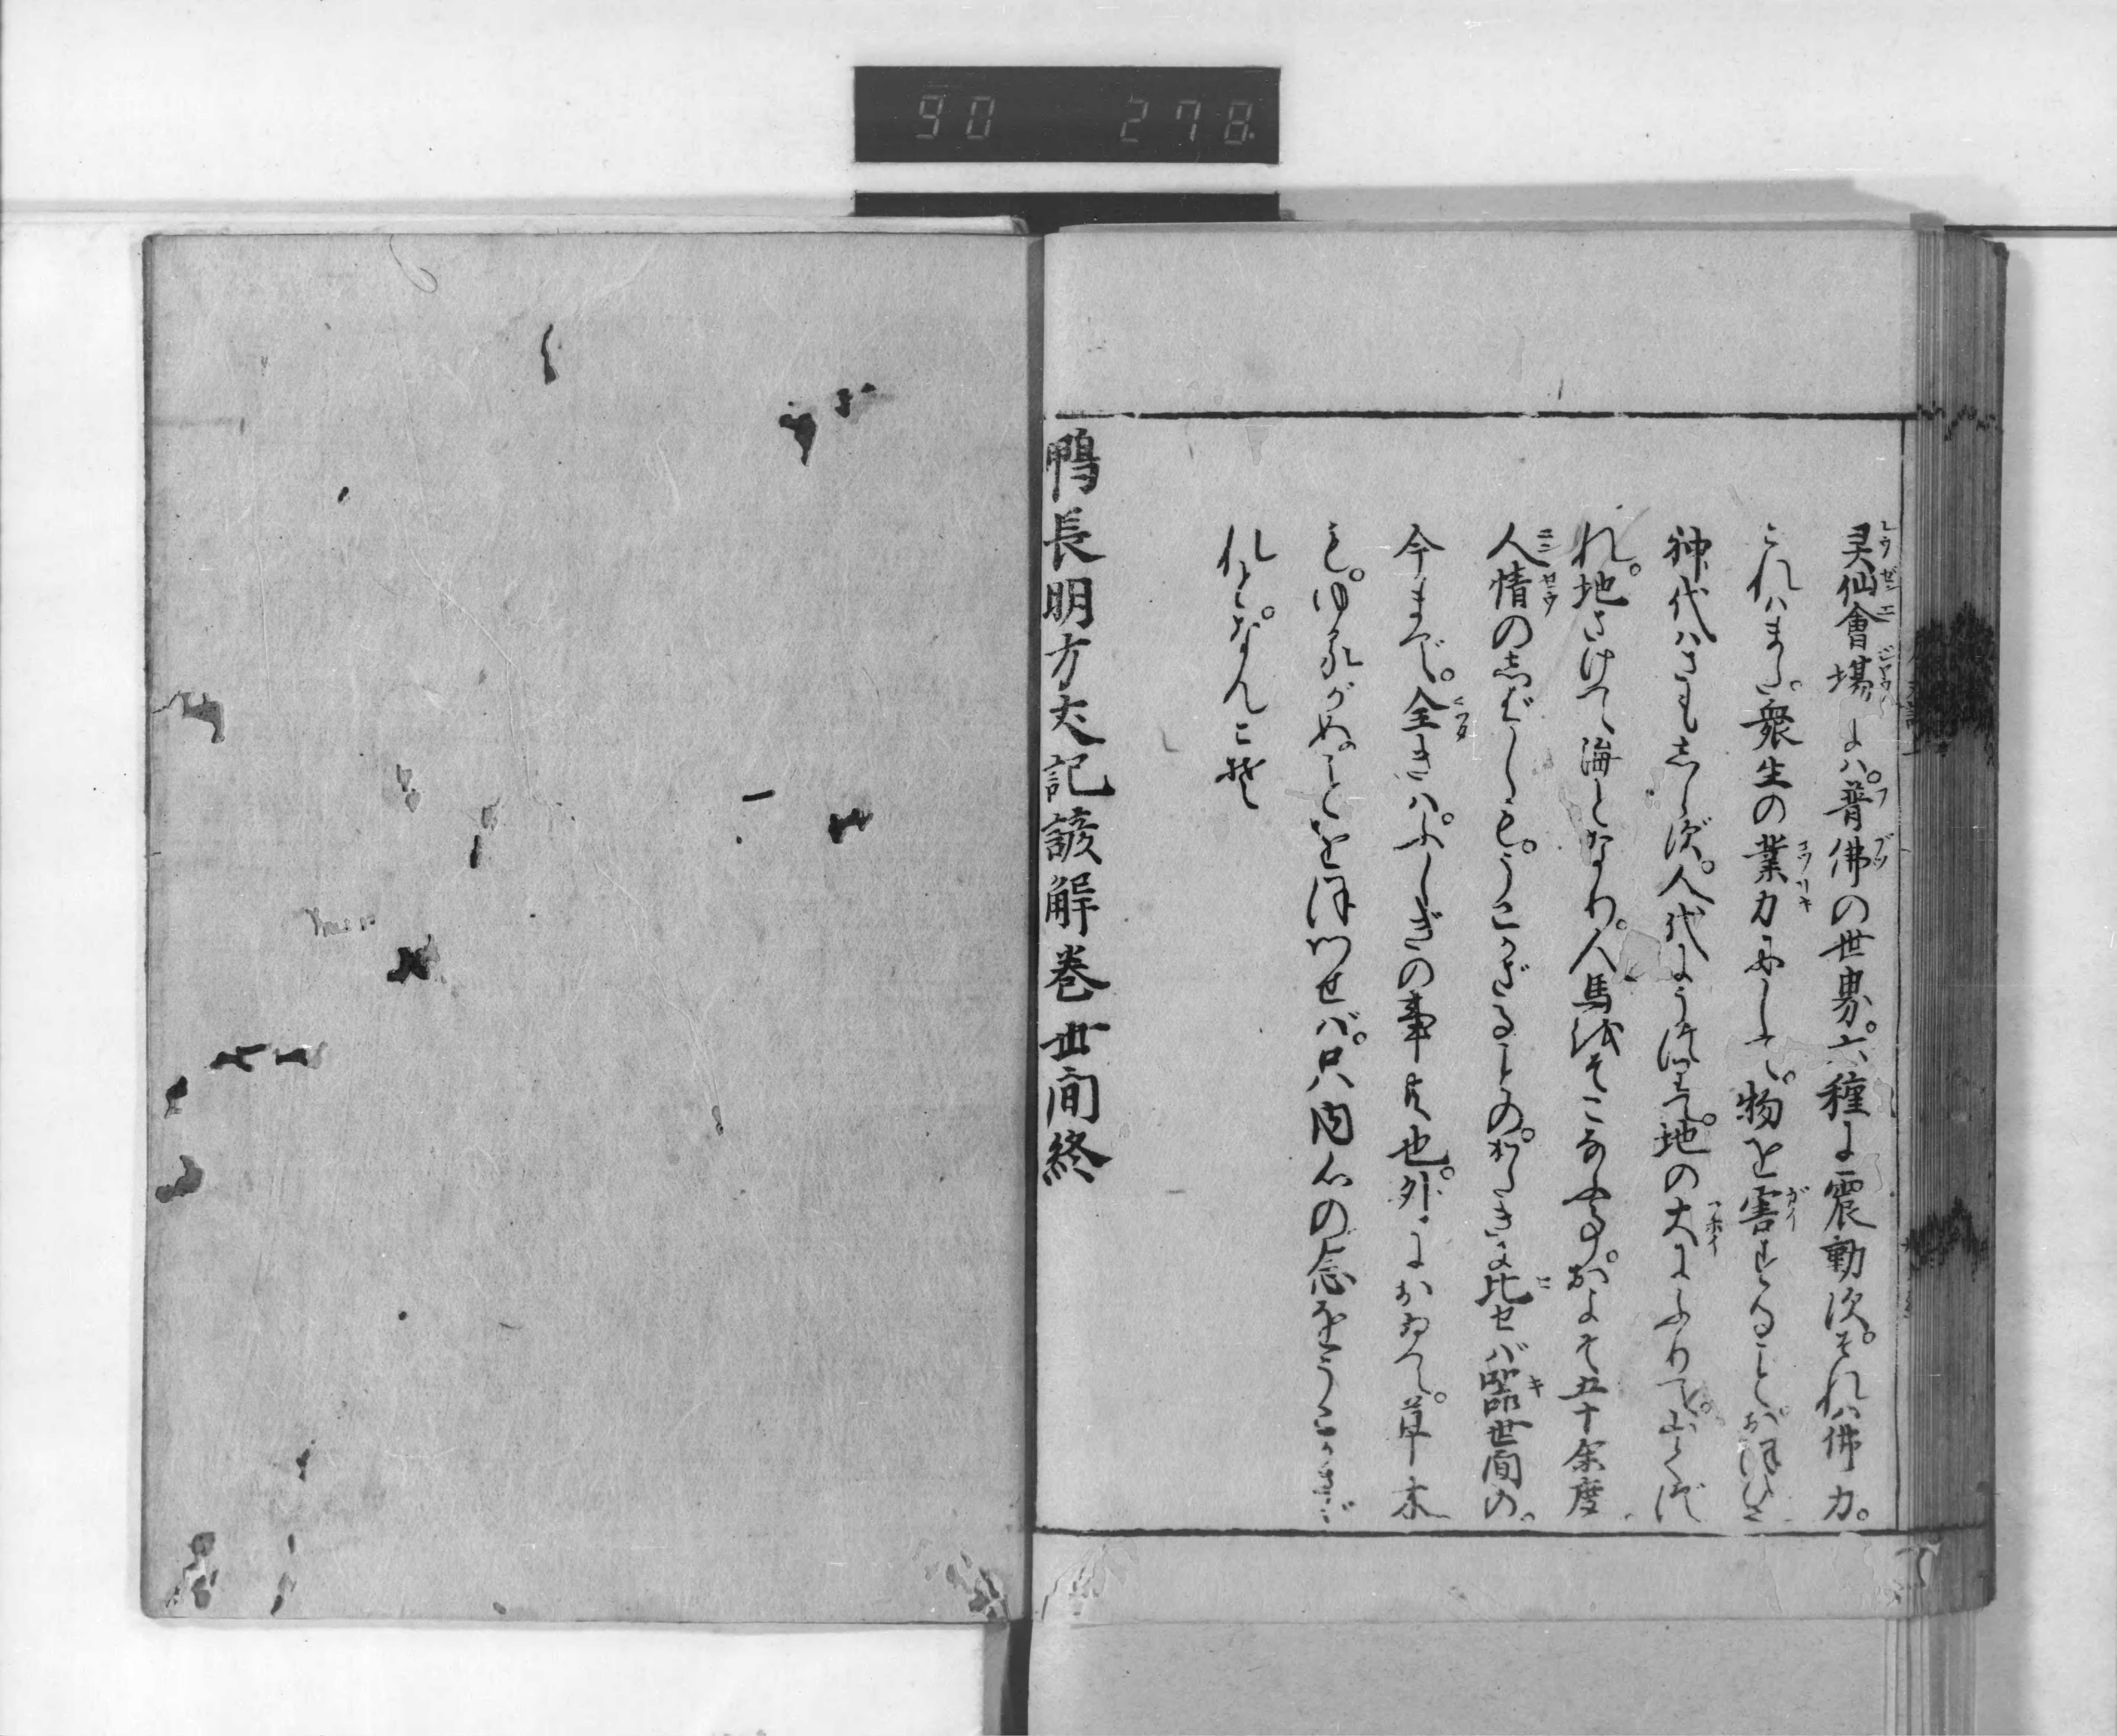 90 278
灵仙會場には。普佛の世界。六種に震動す。それハ佛力。
これハまた。衆生の業力にして。物を害することおほひ
神代ハさもあらず。人代にうつりて。地の大にふりて。山くづ
れ。地さけて海となり。人馬をそこなふ事。およそ五十余度
人情のあしも。うごかざるものゝ。比せバ器世間の。
今まで。全きハ。ふしぎの事共也。外におゐて。草木
も。ゆるがぬことをほつせバ。只内心の念をうごかさゞ
れと。なんこそ
鴨長明方丈記諺解巻世間終